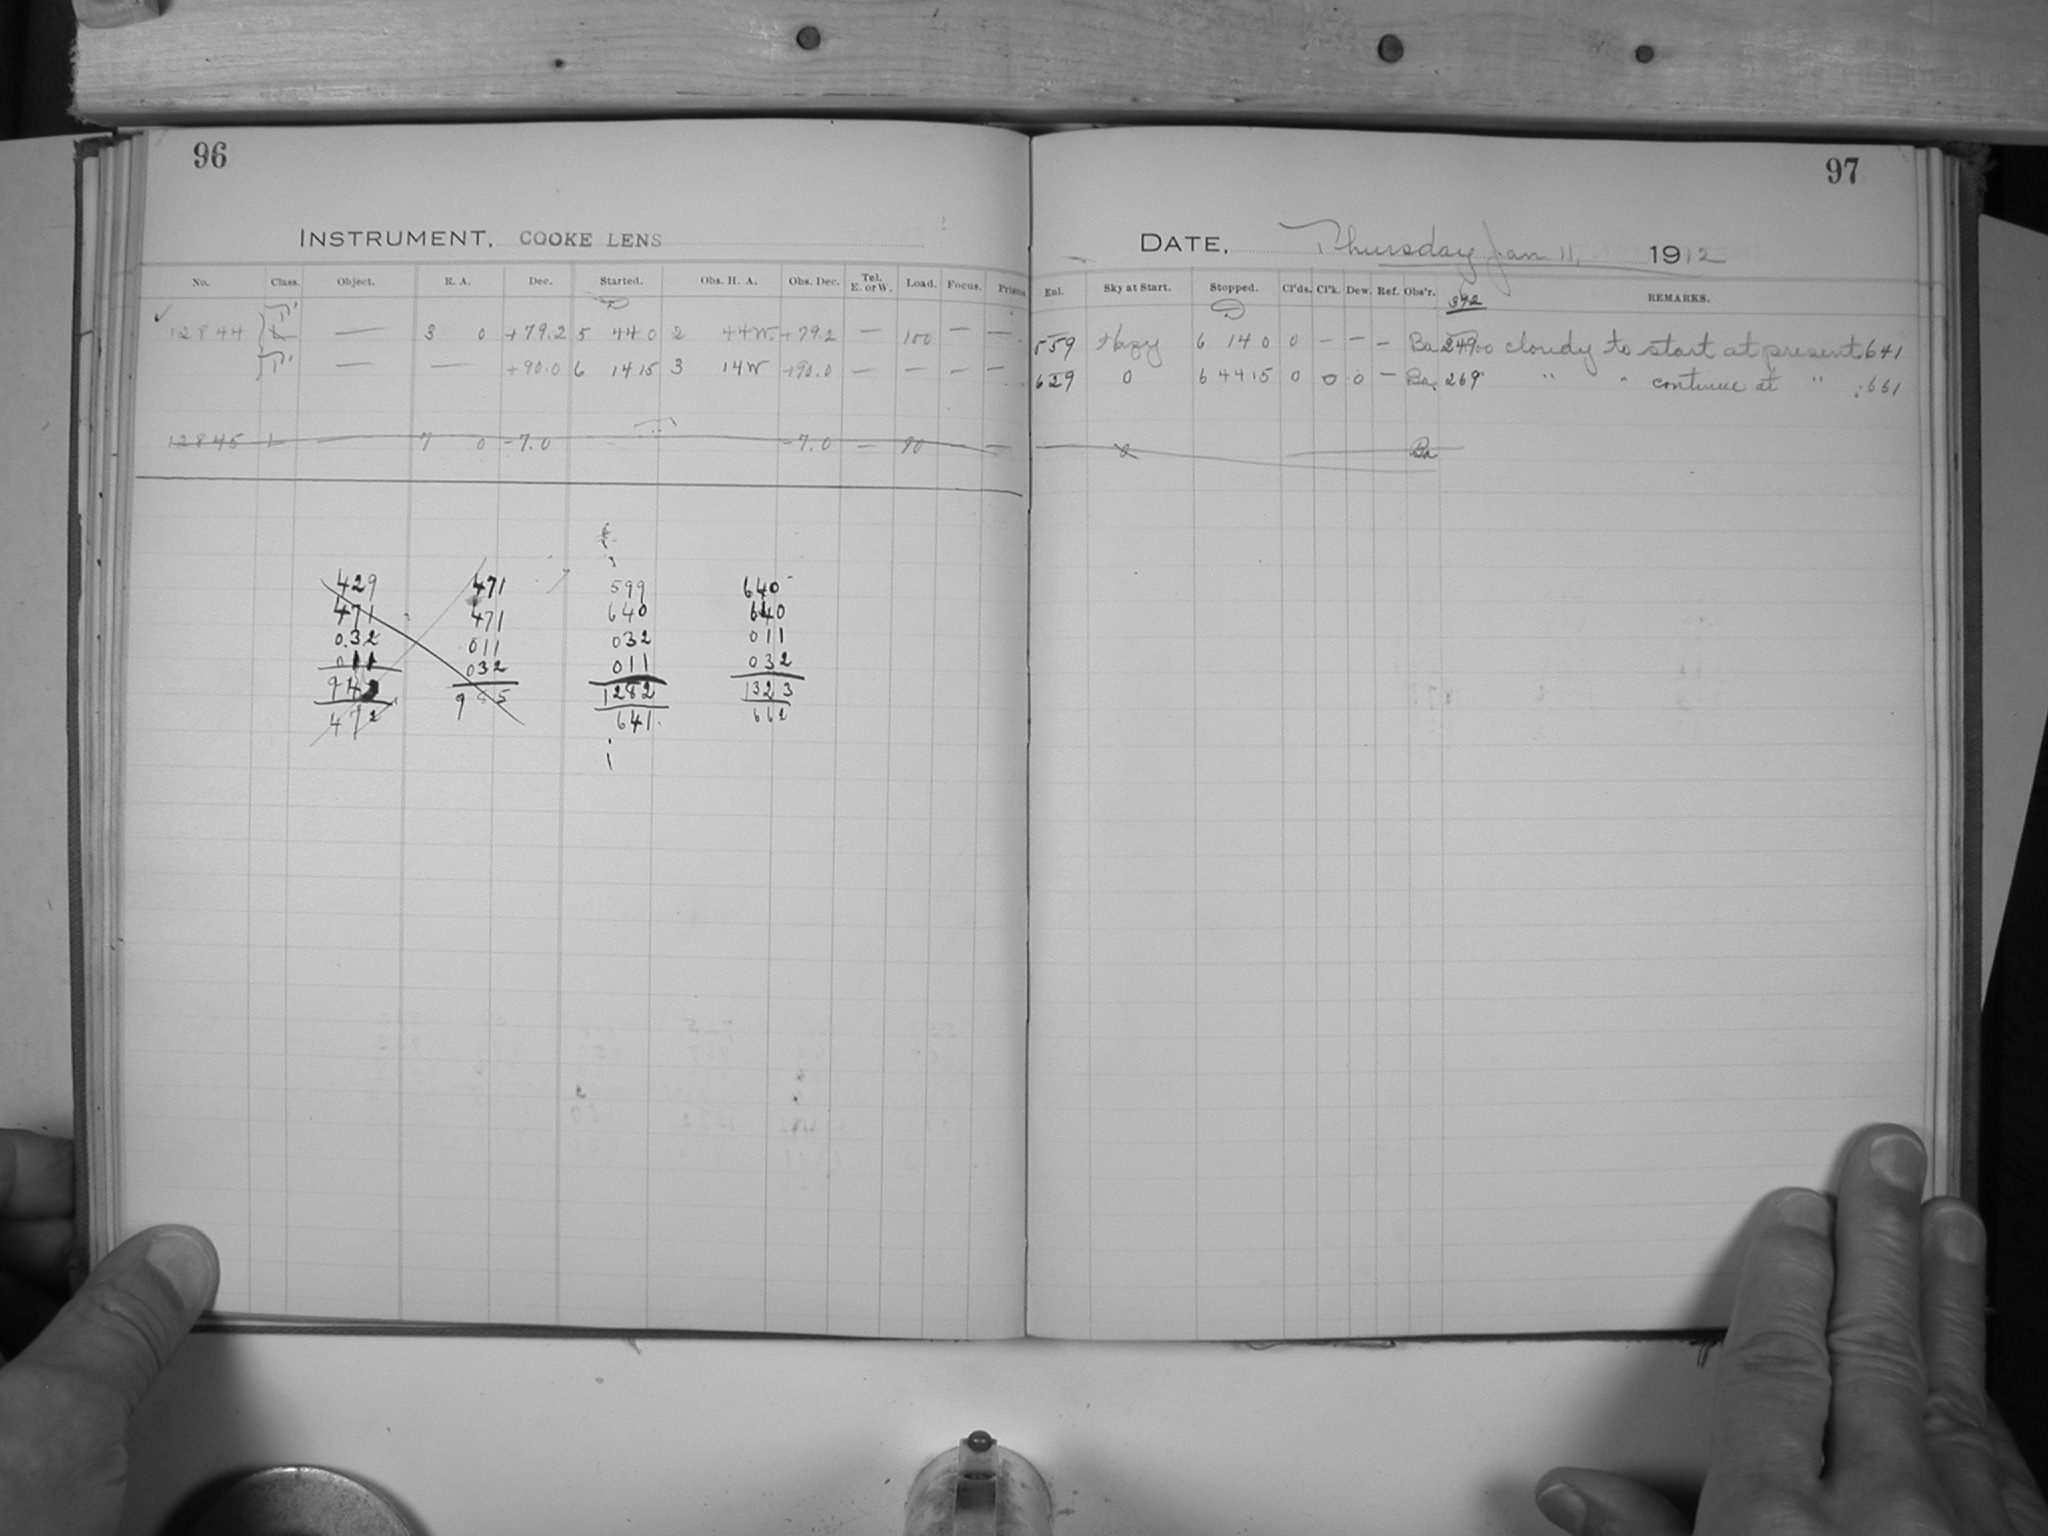 96
INSTRUMENT, COOKE LENS
No. Class. Object. R. A. Dec. Started. Obs. H. A. Obs. Dec. Tel. E. or W. Load. Focus. Prisms
12844 L — 3 0 +79.2 5 44 0 2 44W. +79.2 — 100 — —
— — +90.0 6 14 15 3 14W +90.0 — — — —
12845 L — 7 0 -7.0 -7.0 — 90 — —
429 471 599 640
471 471 640 640
032 011 032 011
011 032 011 032
943 985 1282 1323
472 641 662
97
DATE, Thursday Jan 11, 1912
Exl. Sky at Start. Stopped. Cl'ds. Cl'k. Dew. Ref. Obs'r. REMARKS.
392
559 Hazy 6 14 0 0 — — — Ba cloudy to start at present .641
629 0 6 44 15 0 0 0 — Ba. 269 " " continue at " .661
Ba